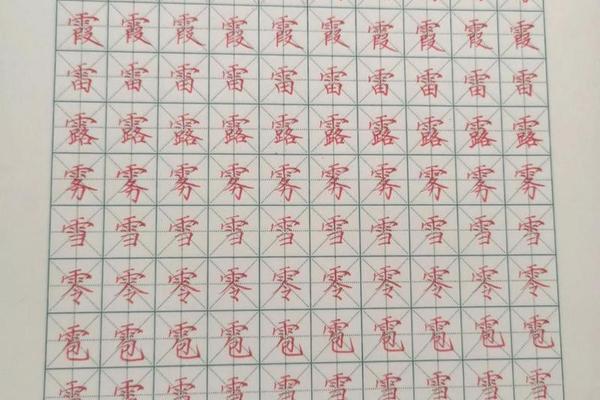 霞霞霞霞霞霞霞霞霞霞
雷雷雷雷雷雷雷雷雷雷
露露露露露露露露露露
雾雾雾雾雾雾雾雾雾雾
雪雪雪雪雪雪雪雪雪雪
零零零零零零零零零零
雹雹雹雹雹雹雹雹雹雹